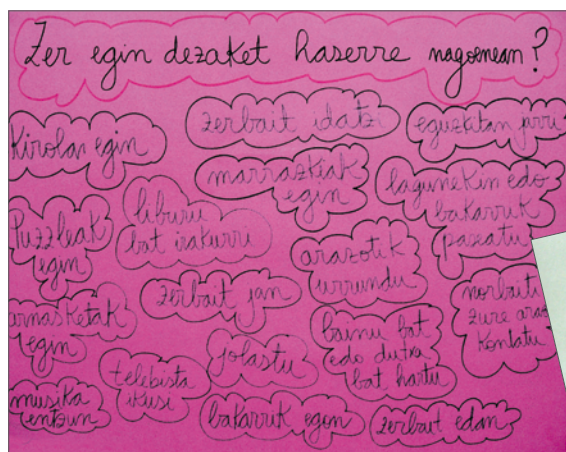 Zer egin dezaket haserre nagoenean?
Kirolan egin
zerbait idatzi
eguzkitan jarri
marrazkiak
egin
lagunekin edo
bakarrik
paseatu
Puzzleak
egin
liburu
bat irakurri
arazotik
urrundu
zerbait jan
norbaiti
zure
kontatu
arnasketak
egin
jolastu
bainu bat
edo dutxa
bat hartu
telebista
ikusi
musika
entzun
bakarrik egon
zerbait edan